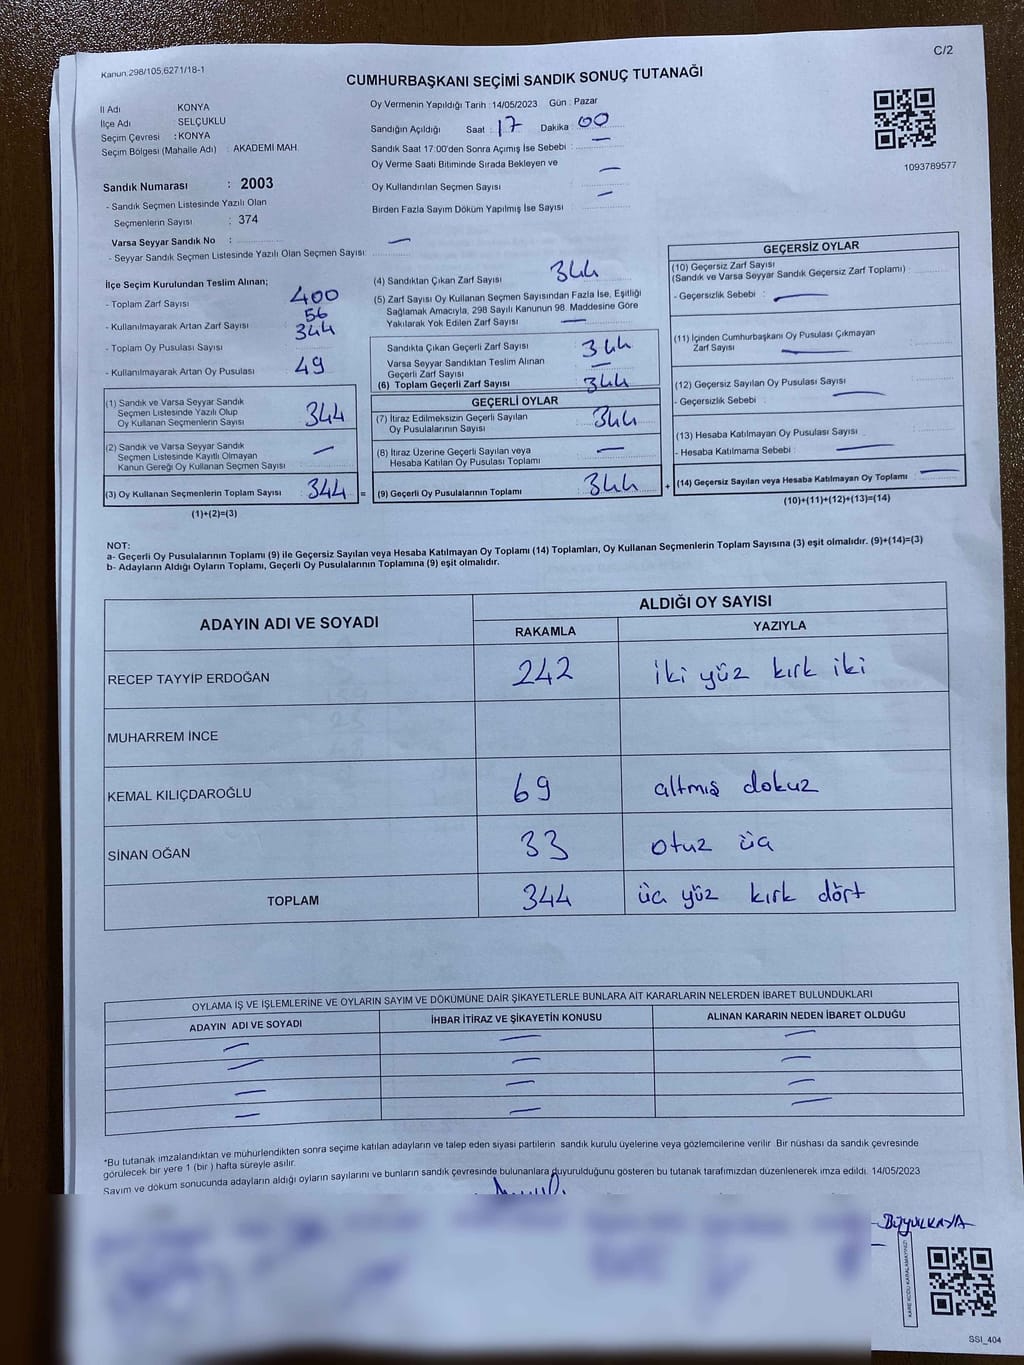 Kanun;298/105;6271/18-1
C/2
CUMHURBAŞKANI SEÇİMİ SANDIK SONUÇ TUTANAĞI
İl Adı KONYA
İlçe Adı SELÇUKLU
Seçim Çevresi : KONYA
Seçim Bölgesi (Mahalle Adı) : AKADEMİ MAH.
Oy Vermenin Yapıldığı Tarih : 14/05/2023 Gün : Pazar
Sandığın Açıldığı Saat : 17 Dakika : 00
Sandık Saat 17:00'den Sonra Açımış İse Sebebi : —
Oy Verme Saati Bitiminde Sırada Bekleyen ve
Oy Kullandırılan Seçmen Sayısı : —
Birden Fazla Sayım Döküm Yapılmış İse Sayısı : —
1093789577
Sandık Numarası : 2003
- Sandık Seçmen Listesinde Yazılı Olan
Seçmenlerin Sayısı : 374
Varsa Seyyar Sandık No :
- Seyyar Sandık Seçmen Listesinde Yazılı Olan Seçmen Sayısı: —
İlçe Seçim Kurulundan Teslim Alınan;
- Toplam Zarf Sayısı 400
- Kullanılmayarak Artan Zarf Sayısı : 56
- Toplam Oy Pusulası Sayısı : 344
- Kullanılmayarak Artan Oy Pusulası : 49
(1) Sandık ve Varsa Seyyar Sandık
Seçmen Listesinde Yazılı Olup
Oy Kullanan Seçmenlerin Sayısı : 344
(2) Sandık ve Varsa Seyyar Sandık
Seçmen Listesinde Kayıtlı Olmayan
Kanun Gereği Oy Kullanan Seçmen Sayısı : —
(3) Oy Kullanan Seçmenlerin Toplam Sayısı : 344
(1)+(2)=(3)
(4) Sandıktan Çıkan Zarf Sayısı : 344
(5) Zarf Sayısı Oy Kullanan Seçmen Sayısından Fazla İse, Eşitliği
Sağlamak Amacıyla, 298 Sayılı Kanunun 98. Maddesine Göre
Yakılarak Yok Edilen Zarf Sayısı : —
Sandıkta Çıkan Geçerli Zarf Sayısı : 344
Varsa Seyyar Sandıktan Teslim Alınan
Geçerli Zarf Sayısı : —
(6) Toplam Geçerli Zarf Sayısı : 344
GEÇERLİ OYLAR
(7) İtiraz Edilmeksizin Geçerli Sayılan
Oy Pusulalarının Sayısı : 344
(8) İtiraz Üzerine Geçerli Sayılan veya
Hesaba Katılan Oy Pusulası Toplamı : —
= (9) Geçerli Oy Pusulalarının Toplamı : 344
GEÇERSİZ OYLAR
(10) Geçersiz Zarf Sayısı
(Sandık ve Varsa Seyyar Sandık Geçersiz Zarf Toplamı) :
- Geçersizlik Sebebi : —
(11) İçinden Cumhurbaşkanı Oy Pusulası Çıkmayan
Zarf Sayısı : —
(12) Geçersiz Sayılan Oy Pusulası Sayısı :
- Geçersizlik Sebebi : —
(13) Hesaba Katılmayan Oy Pusulası Sayısı :
- Hesaba Katılmama Sebebi : —
+ (14) Geçersiz Sayılan veya Hesaba Katılmayan Oy Toplamı : —
(10)+(11)+(12)+(13)=(14)
NOT:
a- Geçerli Oy Pusulalarının Toplamı (9) ile Geçersiz Sayılan veya Hesaba Katılmayan Oy Toplamı (14) Toplamları, Oy Kullanan Seçmenlerin Toplam Sayısına (3) eşit olmalıdır. (9)+(14)=(3)
b- Adayların Aldığı Oyların Toplamı, Geçerli Oy Pusulalarının Toplamına (9) eşit olmalıdır.
ADAYIN ADI VE SOYADI ALDIĞI OY SAYISI
RAKAMLA YAZIYLA
RECEP TAYYİP ERDOĞAN 242 iki yüz kırk iki
MUHARREM İNCE
KEMAL KILIÇDAROĞLU 69 altmış dokuz
SİNAN OĞAN 33 otuz üç
TOPLAM 344 üç yüz kırk dört
OYLAMA İŞ VE İŞLEMLERİNE VE OYLARIN SAYIM VE DÖKÜMÜNE DAİR ŞİKAYETLERLE BUNLARA AİT KARARLARIN NELERDEN İBARET BULUNDUKLARI
ADAYIN ADI VE SOYADI İHBAR İTİRAZ VE ŞİKAYETİN KONUSU ALINAN KARARIN NEDEN İBARET OLDUĞU
— — —
— — —
— — —
— — —
*Bu tutanak imzalandıktan ve mühürlendikten sonra seçime katılan adayların ve talep eden siyasi partilerin sandık kurulu üyelerine veya gözlemcilerine verilir. Bir nüshası da sandık çevresinde
görülecek bir yere 1 (bir ) hafta süreyle asılır.
Sayım ve döküm sonucunda adayların aldığı oyların sayılarını ve bunların sandık çevresinde bulunanlara duyurulduğunu gösteren bu tutanak tarafımızdan düzenlenerek imza edildi. 14/05/2023
BÜYÜKKAYA
KARE KODU KARALAMAYINIZ!
SSI_404